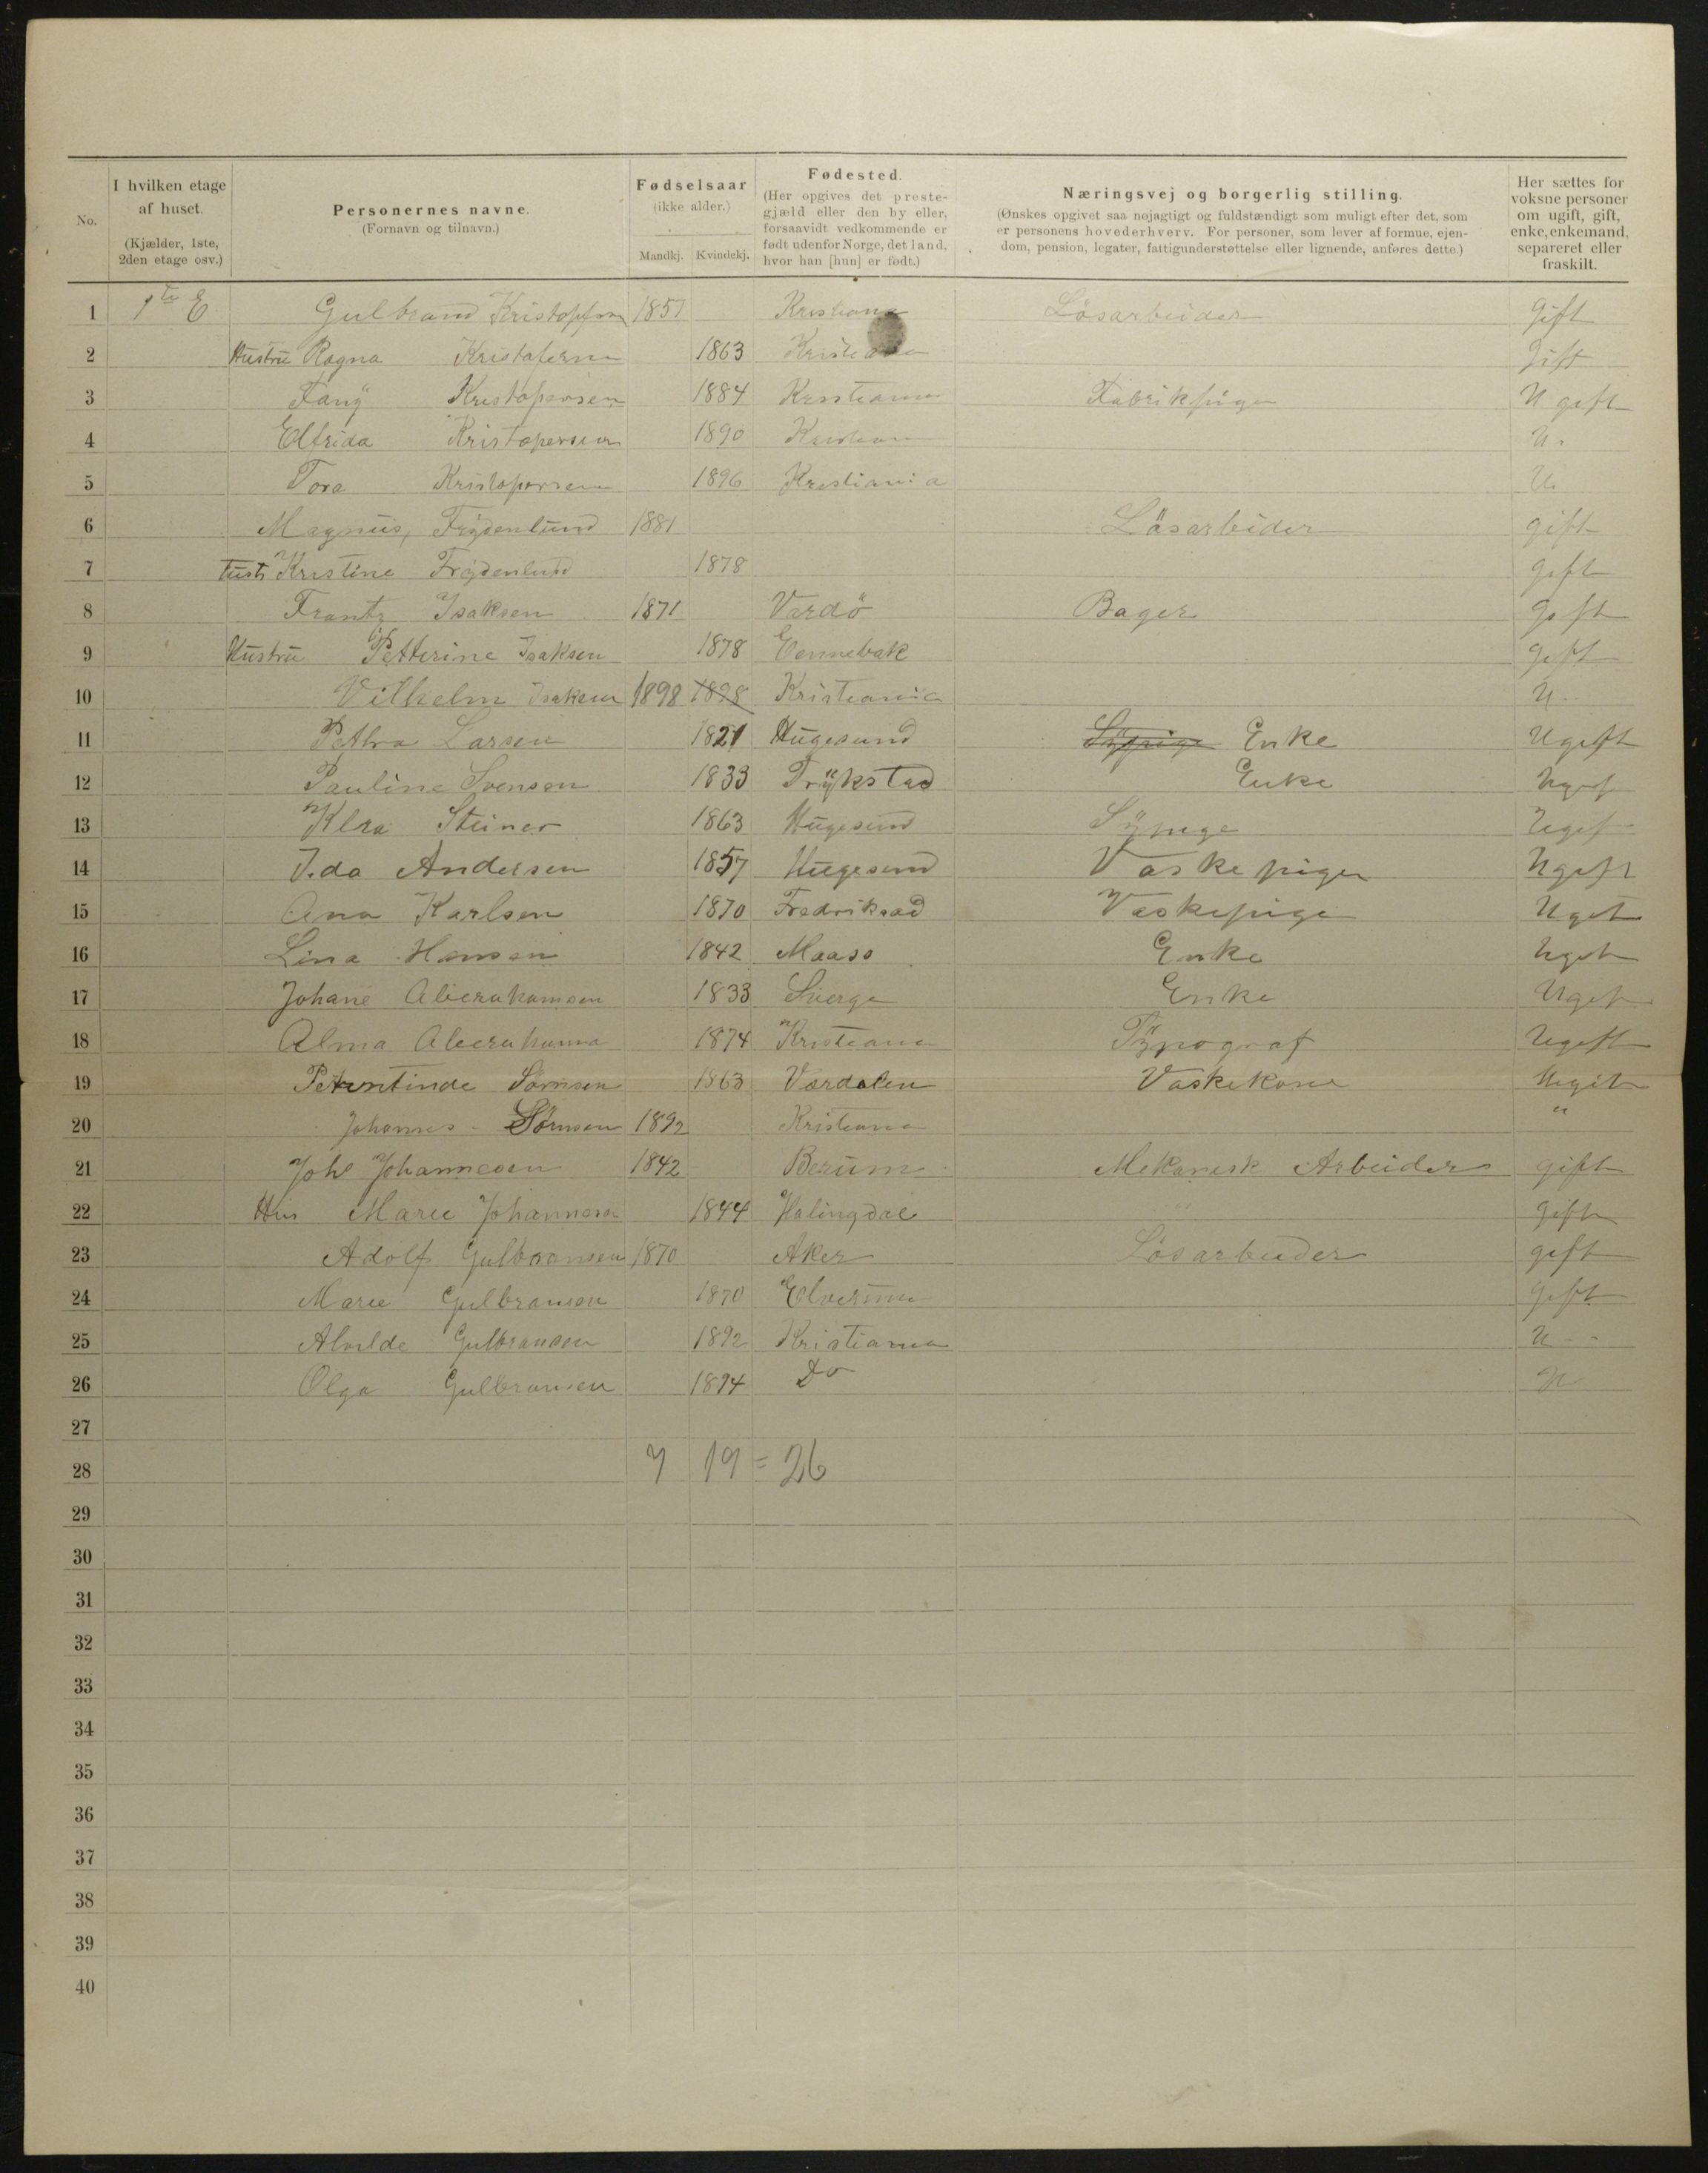 No.
I hvilken etage af huset. (Kjælder, 1ste, 2den etage osv.)
Personernes navne. (Fornavn og tilnavn.)
Fødselsaar (ikke alder.) Mandkj. Kvindekj.
Fødested. (Her opgives det prestegjæld eller den by eller, forsaavidt vedkommende er født udenfor Norge, det land, hvor han [hun] er født.)
Næringsvej og borgerlig stilling. (Ønskes opgivet saa nøjagtigt og fuldstændigt som muligt efter det, som er personens hovederhverv. For personer, som lever af formue, ejendom, pension, legater, fattigunderstøttelse eller lignende, anføres dette.)
Her sættes for voksne personer om ugift, gift, enke, enkemand, separeret eller fraskilt.
1 1ste E Gulbrand 1851 Kristiania Lösarbeider Gift
2 Hustru Ragna Kristofersen 1863 Kristiania Gift
3 Fany Kristopersen 1884 Kristiania Fabrikpige Ugift
4 Elfrida Kristopersen 1890 U.
5 Tora Kristopersen 1896 Kristiania U.
6 Magnus, Frydenlund 1881 Lösarbeider gift
7 Kristine Frydenlund 1878 gift
8 Frantz Isaksen 1871 Vardö Bager gift
9 Hustru Petterine Isaksen 1878 Eennebak gift
10 Vilhelm Isaksen 1898 1898 Kristiania U.
11 Petra Larsen 1821 Hugesund Sypige Enke Ugift
12 Pauline Svensen 1833 Trykstad Enke Ugif
13 Klra Steiner 1863 Hugesund Sypige Ugif
14 Ida Andersen 1857 Hugesund Vaskepige Ugift
15 Ana Karlsen 1870 Fredriksad Vaskepige Ugit
16 Lina Hansen 1842 Maass Enke Ugit
17 Johane 1833 Sverge Enke Ugif
18 Alma 1874 Kristiana Typograf Ugift
19 Sörnsen 1863 Værdalen Vaskekone Ugift
20 Johannes Sörnsen 1892 Kristiana "
21 Johl Johannesen 1842 Berum Mekanisk Arbeider gift
22 Hus Marie Johannesen 1844 Halingdal gift
23 Adolf Gulbransen 1870 Aker Lösarbeider gift
24 Marie Gulbransen 1870 Elverum gift
25 Alvilde Gulbransen 1892 Kristiania U
26 Olga Gulbransen 1894 Do U
27
28 7 19 = 26
29
30
31
32
33
34
35
36
37
38
39
40